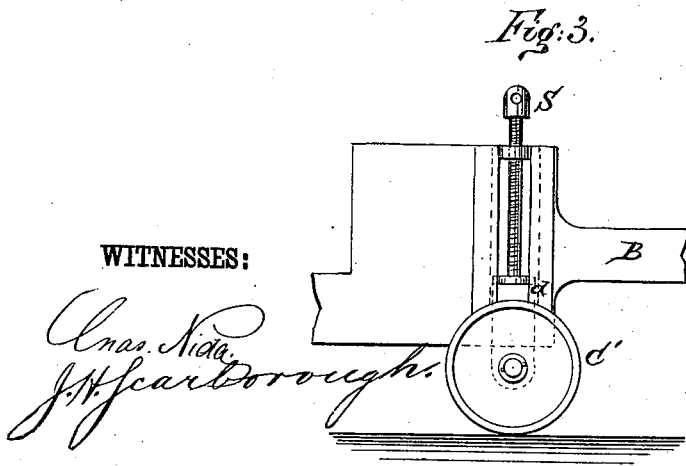 Fig. 3.
S
B
WITNESSES:
d
Chas. Nida.
d'
J. H. Scarborough.